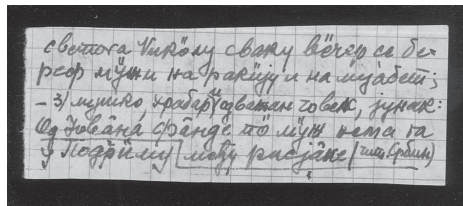 светога Нико̏лу сваку ве̏чер се бе-
реф му̏жи на раки̏ју и на му̏абет;
– 3) мушко, храбар, одважан човек, јунак:
Од Јова̑на Фа̑нде то̏ му̏ж нема га
у Подри̏му / међу расја̑не (титл. Србин)